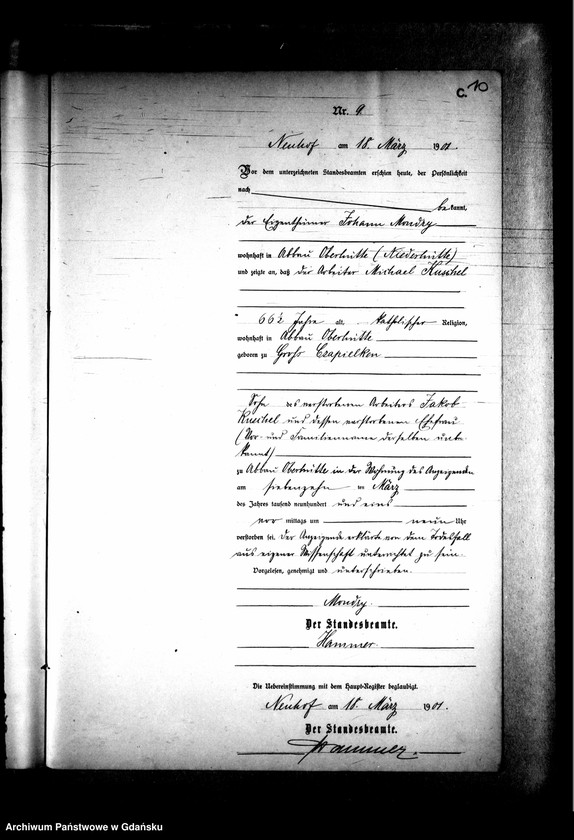 C. 10
Nr. 9
Neuhof am 18. März 1901.
Vor dem unterzeichneten Standesbeamten erschien heute, der Persönlichkeit
nach
be kannt,
der Eigenthümer Johann Mondry
wohnhaft in Abbau Oberhütte (Niederhütte)
und zeigte an, daß der Arbeiter Michael Kuschel
66½ Jahre alt, katholischer Religion,
wohnhaft in Abbau Oberhütte
geboren zu Groß Czapielken
Sohn des verstorbenen Arbeiters Jakob
Kuschel und dessen verstorbenen Ehefrau
(Vor- und Familienname derselben unbe
kannt)
zu Abbau Oberhütte in der Wohnung des Anzeigenden
am siebenzehn ten März
des Jahres tausend neunhundert und eins
vor mittags um neun Uhr
verstorben sei. Der Anzeigende erklärte von dem Todesfall
aus eigener Wissenschaft unterrichtet zu sein.
Vorgelesen, genehmigt und unterschrieben.
Mondry
Der Standesbeamte.
Hammer
Die Uebereinstimmung mit dem Haupt-Register beglaubigt.
Neuhof am 18. März 1901.
Der Standesbeamte.
Hammer.
Archiwum Państwowe w Gdańsku